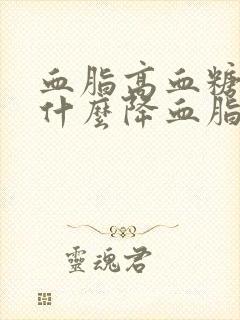 血脂高血糖
什麼降血脂
靈魂君